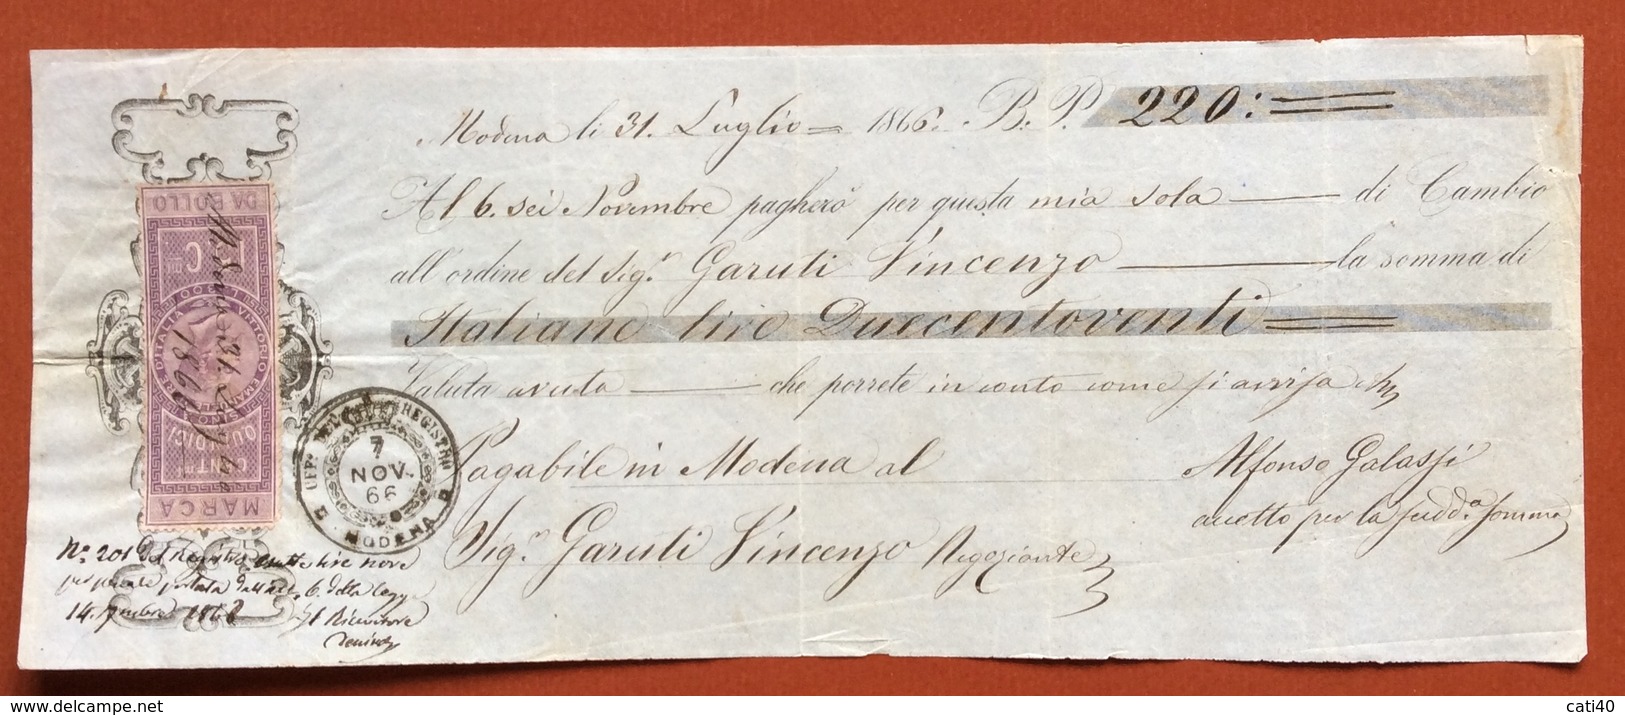 Modena li 31. Luglio = 1866. B. P. 220:
Al 6. sei Novembre pagherò per questa mia sola di Cambio
all'ordine del Sig.r Garuti Vincenzo la somma di
Italiane lire Duecentoventi
Valuta avuta che porrete in conto come si avvisa
Pagabile in Modena al
Sig.r Garuti Vincenzo Negoziante
Alfonso Galassi
accetto per la sudd.a somma
DA BOLLO
C
VITTORIO EMANUELE II RE D'ITALIA
CENT.MI QUINDICI
MARCA
Modena 31. Luglio
1866
REGISTRO
7
NOV.
66
MODENA
N.o 201 Registro lire nove
per penale portata dall'art. 6. della legge
14. 1868
Il Ricevitore
cati40
www.delcampe.net